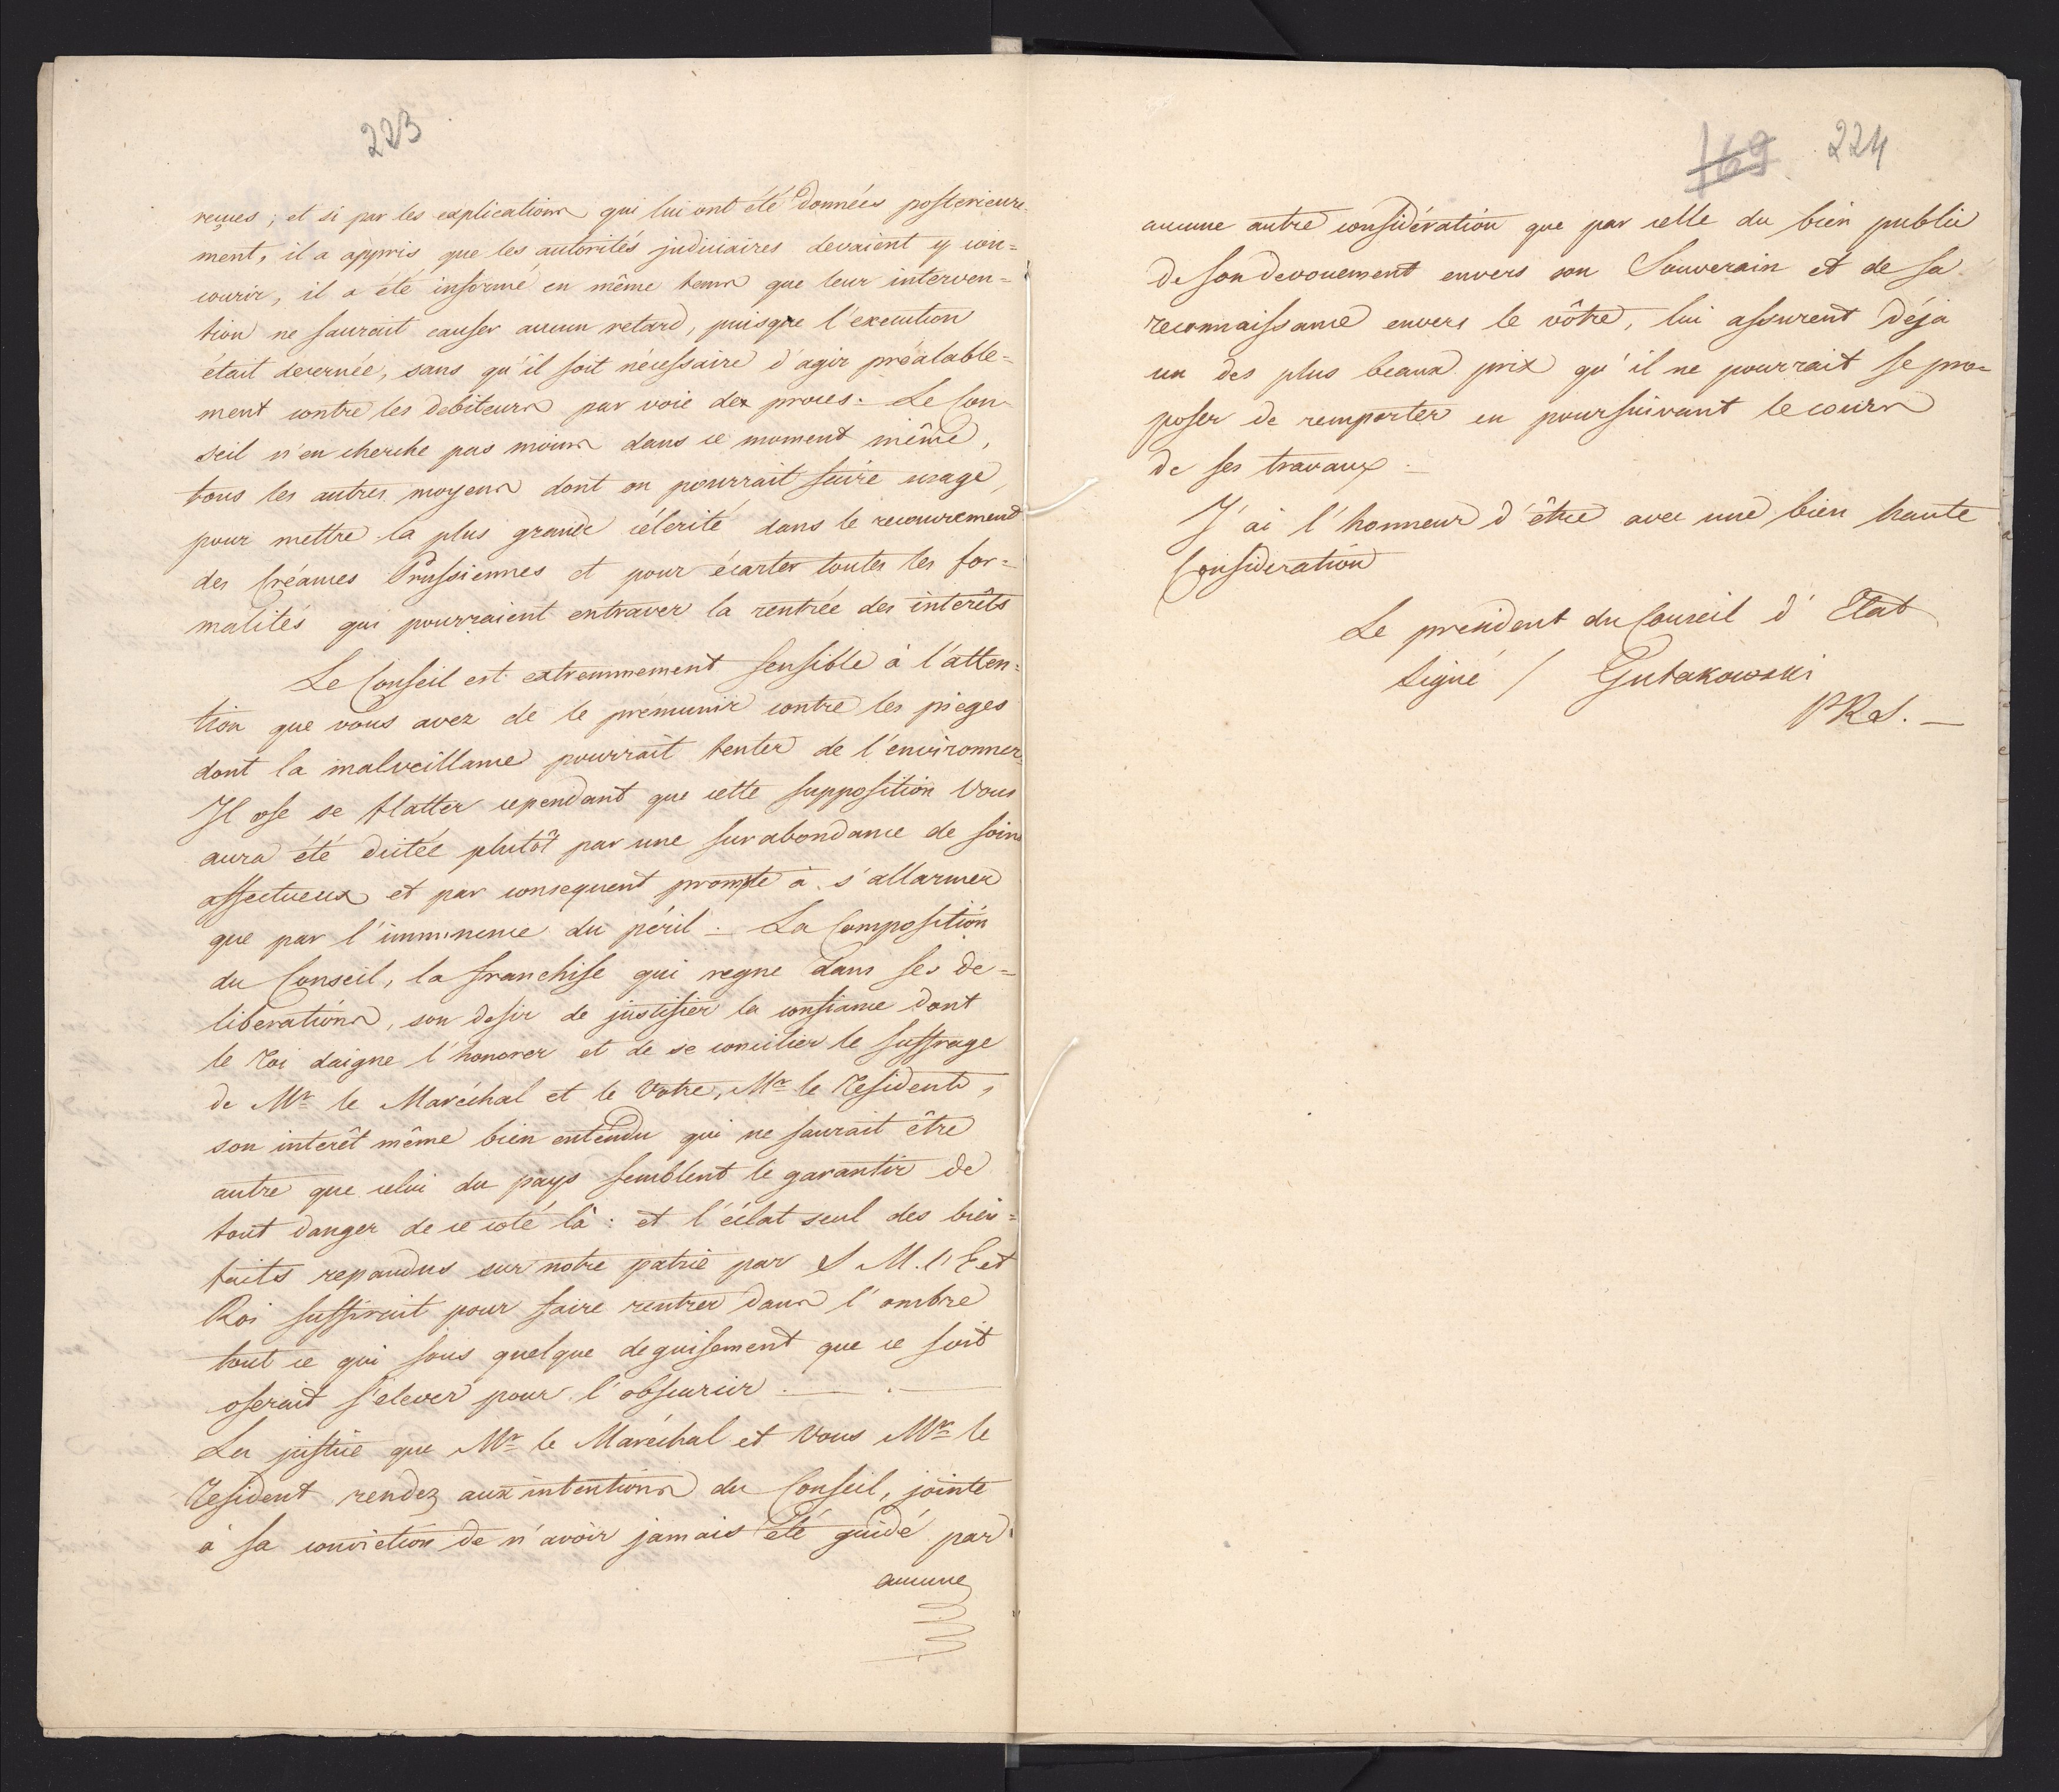 223
reçues; et si par les explications qui lui ont été données posterieure-
ment, il a appris que les autorités judiciaires devaient y con=
courir, il a été informé en même tems que leur interven=
tion ne saurait causer aucun retard, puisque l'execution
était decernée, sans qu'il soit nécessaire d'agir préalable=
ment contre les debiteurs par voie de procès. Le Con-
seil n'en cherche pas moins dans ce moment même,
tous les autres moyens dont on pourrait faire usage,
pour mettre la plus grande célerité dans le recouvrement
des Créances Prussiennes et pour écarter toutes les for=
malités qui pourraient entraver la rentrée des interêts
Le Conseil est extremmement sensible à l'atten=
tion que vous avez de le premunir contre les pieges
dont la malveillance pourrait tenter de l'environner.
Il ose se flatter cependant que cette supposition Vous
aura été dictée plutôt par une surabondance de soins
affectueux et par consequent prompte à s'allarmer
que par l'imminence du péril. La Composition
du Conseil, la franchise qui regne dans ses de=
liberations, son desir de justifier la confiance dont
le Roi daigne l'honorer et de se concilier le suffrage
de Mr le Maréchal et le Votre, Mr le Resident,
son interêt même bien entendu qui ne saurait être
autre que celui du pays semblent le garantir de
tout danger de ce coté là: et l'éclat seul des bien=
faits repandus sur notre patrie par S M. l'E et
Roi suffirait pour faire rentrer dans l'ombre
tout ce qui sous quelque deguisement que ce soit
oserait s'elever pour l'obscurcir.
La justice que Mr le Maréchal et Vous Mr le
Resident rendez aux intentions du Conseil, jointe
à sa conviction de n'avoir jamais été guidé par
aucune
169 224
aucune autre considération que par celle du bien public
de son devouement envers son Souverain et de sa
reconnaissance envers le vôtre, lui assurent déja
un des plus beaux prix qu'il ne pourrait se pro=
poser de remporter en poursuivant le cours
de ses travaux.
J'ai l'honneur d'être avec une bien haute
Consideration
Le president du Conseil d'Etat
signé / Gutakowski